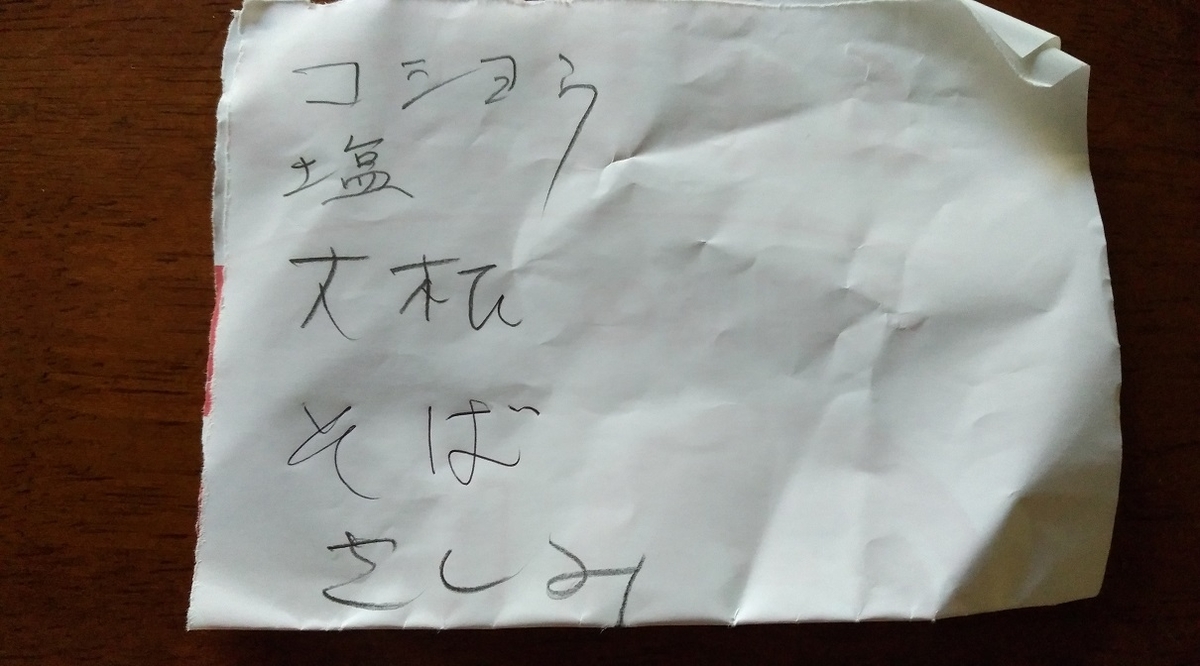 コショウ
塩
大根
そば
さしみ